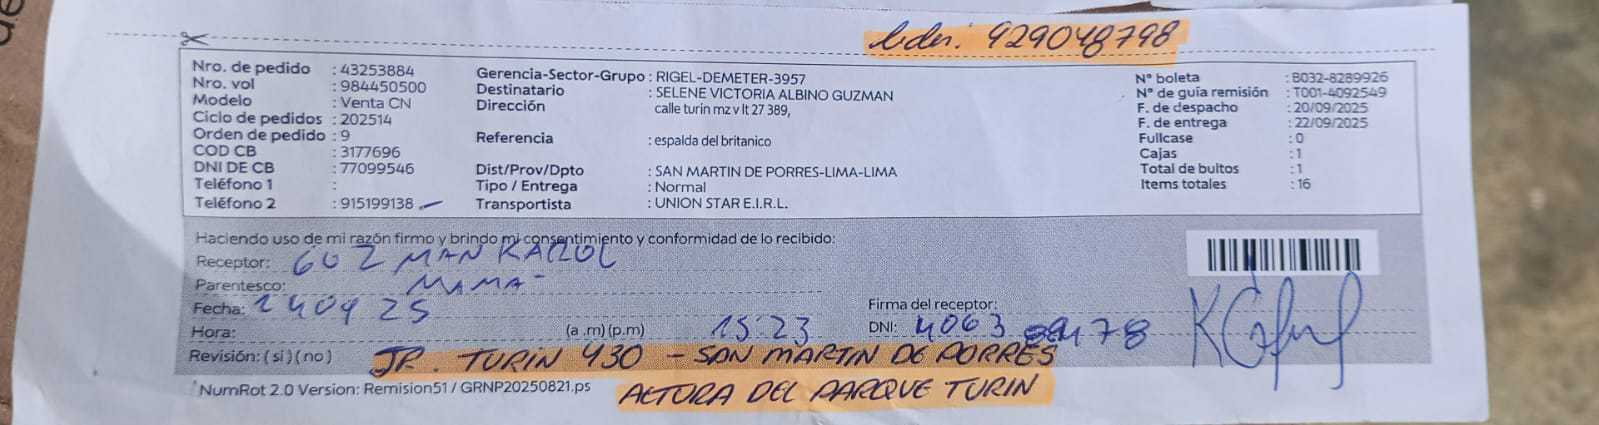 bdn: 929048798
Nro. de pedido : 43253884
Nro. vol : 984450500
Modelo : Venta CN
Ciclo de pedidos : 202514
Orden de pedido : 9
COD CB : 3177696
DNI DE CB : 77099546
Teléfono 1 :
Teléfono 2 : 915199138
Gerencia-Sector-Grupo : RIGEL-DEMETER-3957
Destinatario : SELENE VICTORIA ALBINO GUZMAN
Dirección calle turin mz v lt 27 389,
Referencia : espalda del britanico
Dist/Prov/Dpto : SAN MARTIN DE PORRES-LIMA-LIMA
Tipo / Entrega : Normal
Transportista : UNION STAR E.I.R.L.
N° boleta : B032-8289926
N° de guía remisión : T001-4092549
F. de despacho : 20/09/2025
F. de entrega : 22/09/2025
Fullcase : 0
Cajas : 1
Total de bultos : 1
Items totales : 16
Haciendo uso de mi razón firmo y brindo mi consentimiento y conformidad de lo recibido:
Receptor: GUZMAN KAROL
Parentesco: MAMA
Fecha: 240925
Firma del receptor:
Hora: (a .m) (p.m) 15:23
DNI: 4063
Revisión: ( si ) ( no ) JR. TURIN 430 - SAN MARTIN DE PORRES
NumRot 2.0 Version: Remision51 / GRNP20250821.ps
ALTURA DEL PARQUE TURIN